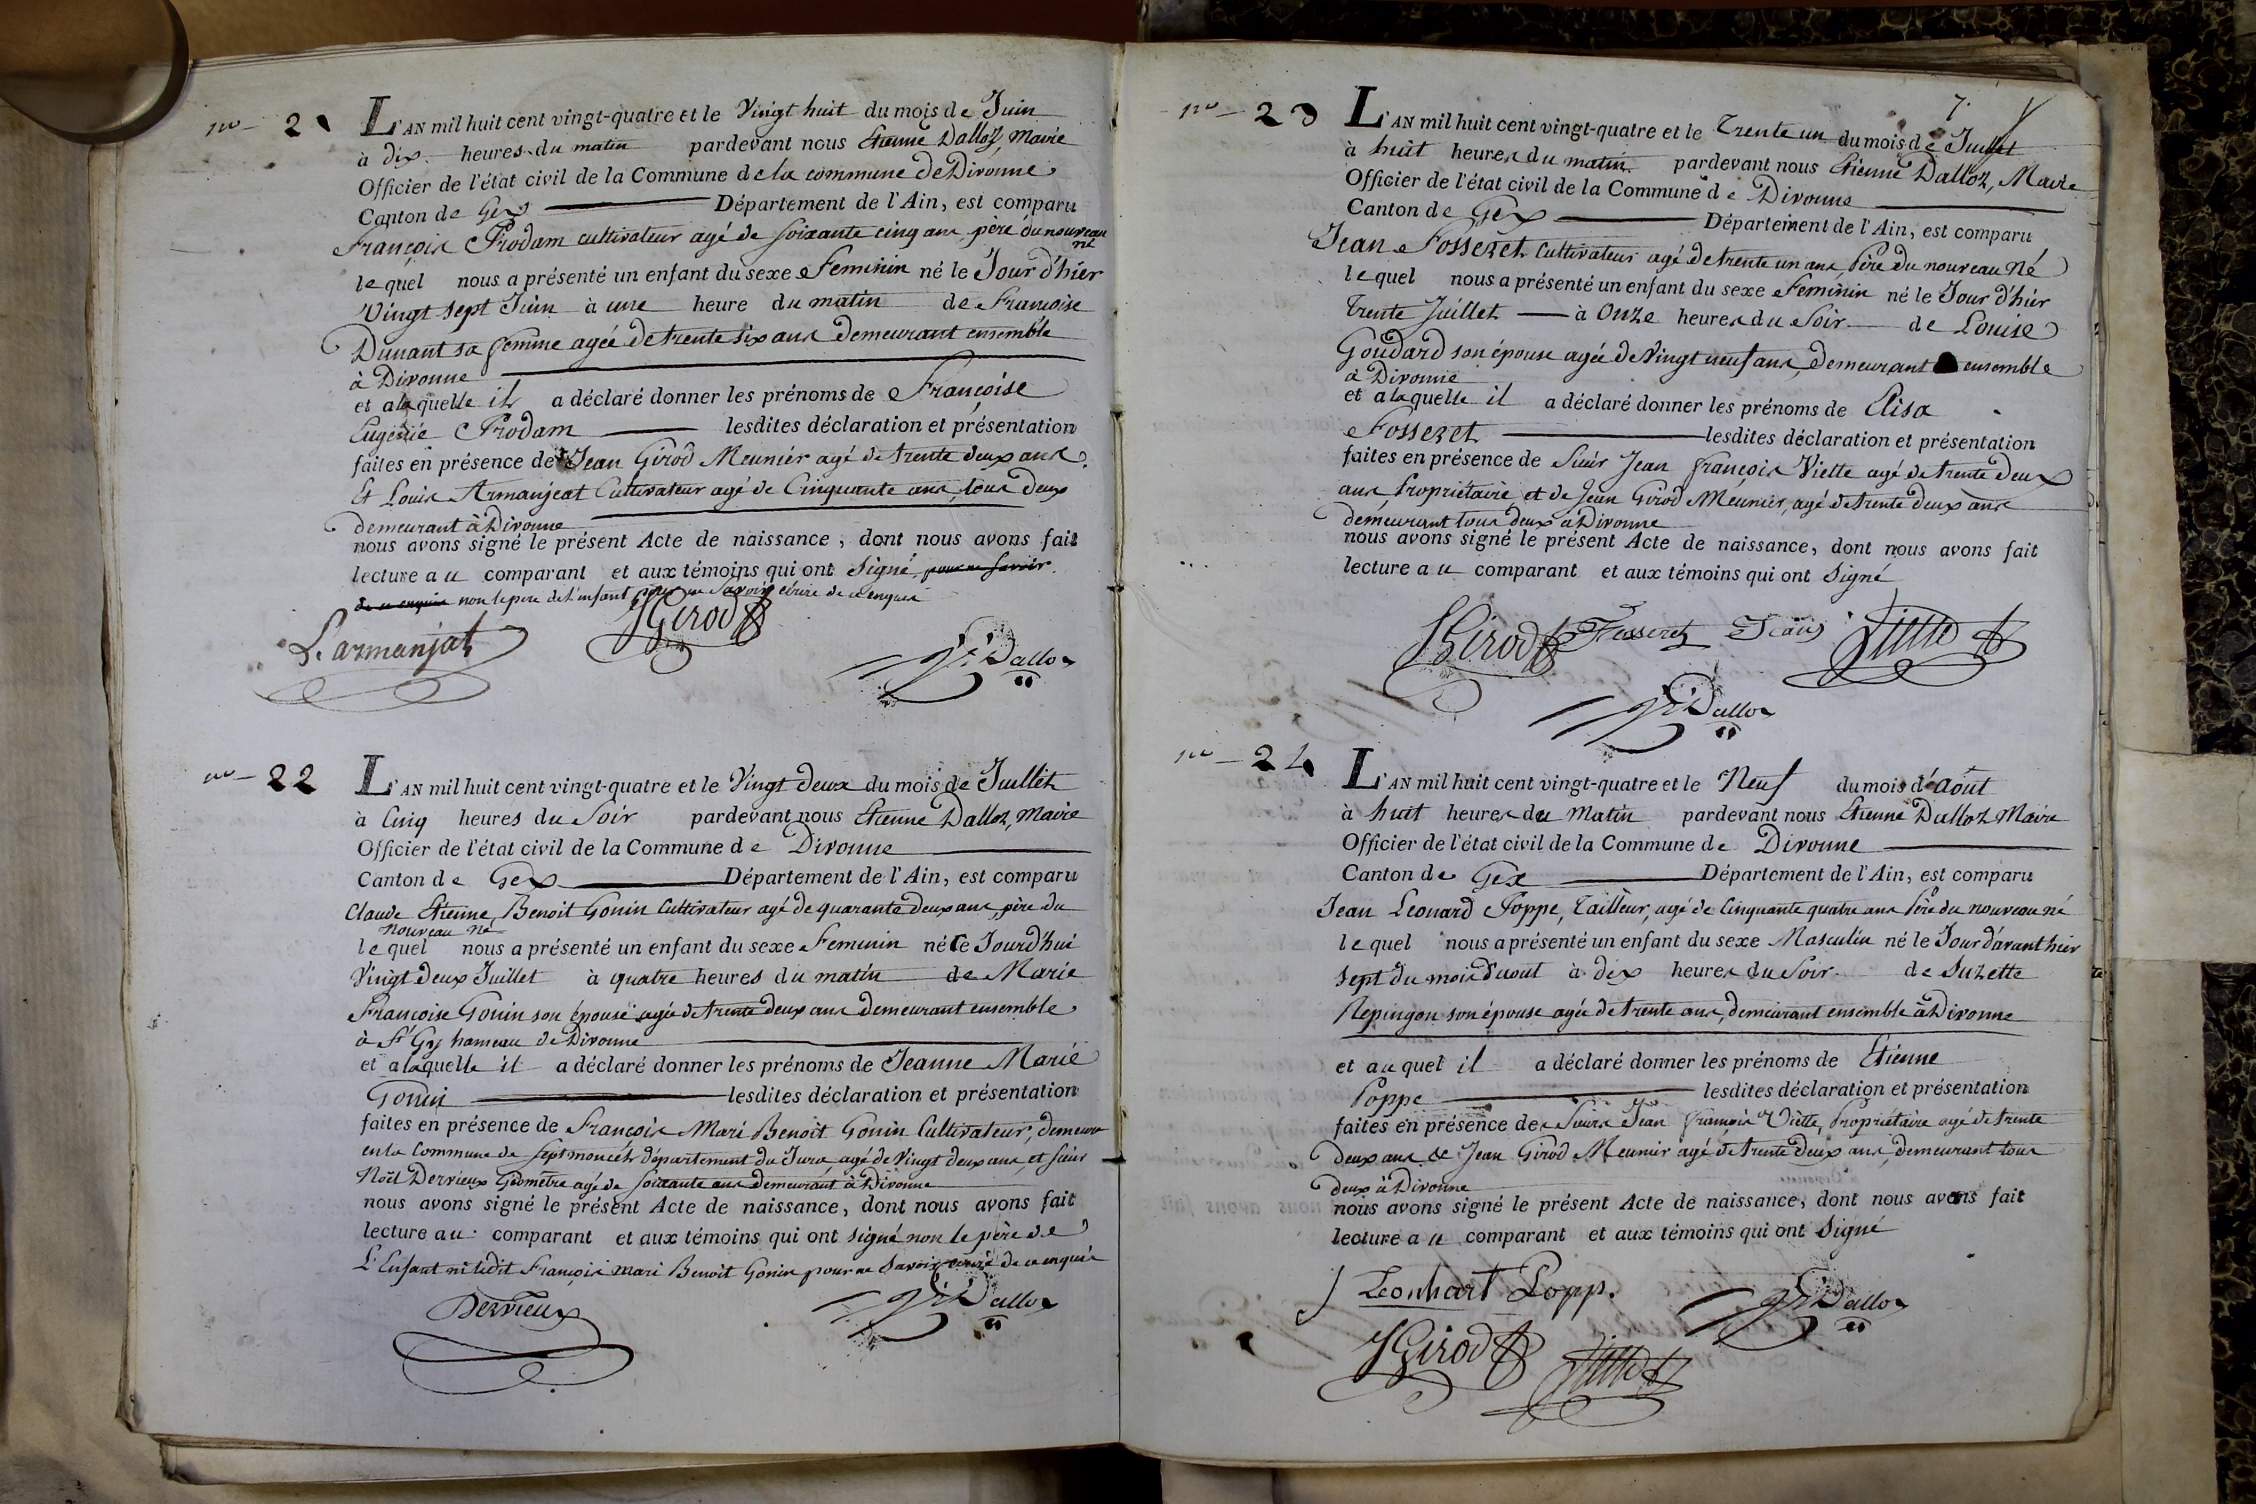 nº 21
L'AN mil huit cent vingt-quatre et le Vingt huit du mois de Juin
à dix heures du matin pardevant nous Etienne Dalloz, Maire
Officier de l'état civil de la Commune de la commune de Divonne
Canton de Gex Département de l'Ain, est comparu
François Prodam cultivateur agé de soixante cinq ans, père du nouveau
né
lequel nous a présenté un enfant du sexe Feminin né le Jour d'hier
Vingt sept Juin à une heure du matin de Françoise
Dunant sa femme agée de trente six ans demeurant ensemble
à Divonne
et a laquelle il a déclaré donner les prénoms de Françoise
Eugénie Prodam lesdites déclaration et présentation
faites en présence de Jean Girod Meunier agé de trente deux ans
Et Louis Armanjeat Cultivateur agé de Cinquante ans, tous deux
demeurant à Divonne
nous avons signé le présent Acte de naissance, dont nous avons fait
lecture au comparant et aux témoins qui ont signé pour ne savoir
de ce enquis non le père de l'enfant pour ne savoir écrire de ce enquis
L. armanjat JGirod
Et Dalloz
nº 22
L'AN mil huit cent vingt-quatre et le Vingt deux du mois de Juillet
à Cinq heures du Soir pardevant nous Etienne Dalloz, Maire
Officier de l'état civil de la Commune de Divonne
Canton de Gex Département de l'Ain, est comparu
Claude Etienne Benoit Gonin Cultivateur agé de quarante deux ans, père du
nouveau né
lequel nous a présenté un enfant du sexe Feminin né Ce Jourd'hui
Vingt Deux Juillet à quatre heures du matin de Marie
Françoise Gonin son épouse agée de trente deux ans demeurant ensemble
à St Gy hameau de Divonne
et a laquelle il a déclaré donner les prénoms de Jeanne Marie
Gonin lesdites déclaration et présentation
faites en présence de François Mari Benoit Gonin Cultivateur, demeurt
en la Commune de Septmoncel département du Jura agé de Vingt deux ans, et sieur
Noël Dervieux Géomètre agé de soixante ans demeurant à Divonne
nous avons signé le présent Acte de naissance, dont nous avons fait
lecture au comparant et aux témoins qui ont signé non le père de
L'Enfant ni ledit François mari Benoit Gonin pour ne savoir écrire de ce enquis
Dervieux Et Dalloz
7.
nº 23
L'AN mil huit cent vingt-quatre et le Trente un du mois de Juillet
à huit heures du matin pardevant nous Etienne Dalloz, Maire
Officier de l'état civil de la Commune de Divonne
Canton de Gex Département de l'Ain, est comparu
Jean Fosseret Cultivateur agé de trente un ans, Père du nouveau Né
lequel nous a présenté un enfant du sexe Feminin né le Jour d'hier
Trente Juillet à Onze heures du Soir de Louise
Goudard son épouse agée de Vingt neuf ans, demeurant ensemble
à Divonne
et a laquelle il a déclaré donner les prénoms de Elisa
Fosseret lesdites déclaration et présentation
faites en présence de Sieur Jean François Viette agé de trente deux
ans Propriétaire et de Jean Girod Meunier, agé de trente deux ans
demeurant tous deux à Divonne
nous avons signé le présent Acte de naissance, dont nous avons fait
lecture au comparant et aux témoins qui ont Signé
JGirod Fosseret Jean Viette
Et Dalloz
nº 24
L'AN mil huit cent vingt-quatre et le Neuf du mois d'août
à huit heures du Matin pardevant nous Etienne Dalloz Maire
Officier de l'état civil de la Commune de Divonne
Canton de Gex Département de l'Ain, est comparu
Jean Leonard Poppe, Tailleur, agé de Cinquante quatre ans Père du nouveau né
lequel nous a présenté un enfant du sexe Masculin né le Jour d'avant hier
sept du mois d'aout à dix heures du Soir de Suzette
Repingon son épouse agée de trente ans, demeurant ensemble à Divonne
et auquel il a déclaré donner les prénoms de Etienne
Poppe lesdites déclaration et présentation
faites en présence de Sieurs Jean François Viette, Propriétaire agé de trente
deux ans & Jean Girod Meunier agé de trente deux ans, demeurant tous
deux à Divonne
nous avons signé le présent Acte de naissance, dont nous avons fait
lecture au comparant et aux témoins qui ont Signé
J Leonhart Popp. Et Dalloz
JGirod Viette